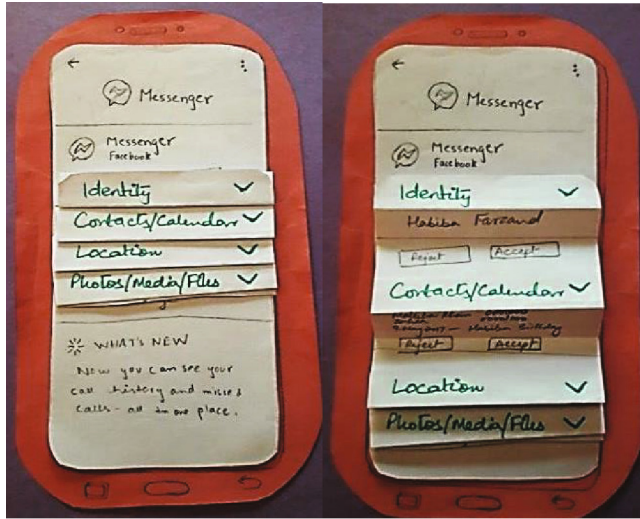 Messenger
Messenger
Facebook
Identity
Contacts/Calendar
Location
Photos/Media/Files
WHAT'S NEW
Now you can see your
call history and missed
calls - all in one place.
Messenger
Messenger
Facebook
Identity
Habiba Farzand
Reject Accept
Contacts/Calendar
Habiba Birthday
Reject Accept
Location
Photos/Media/Files